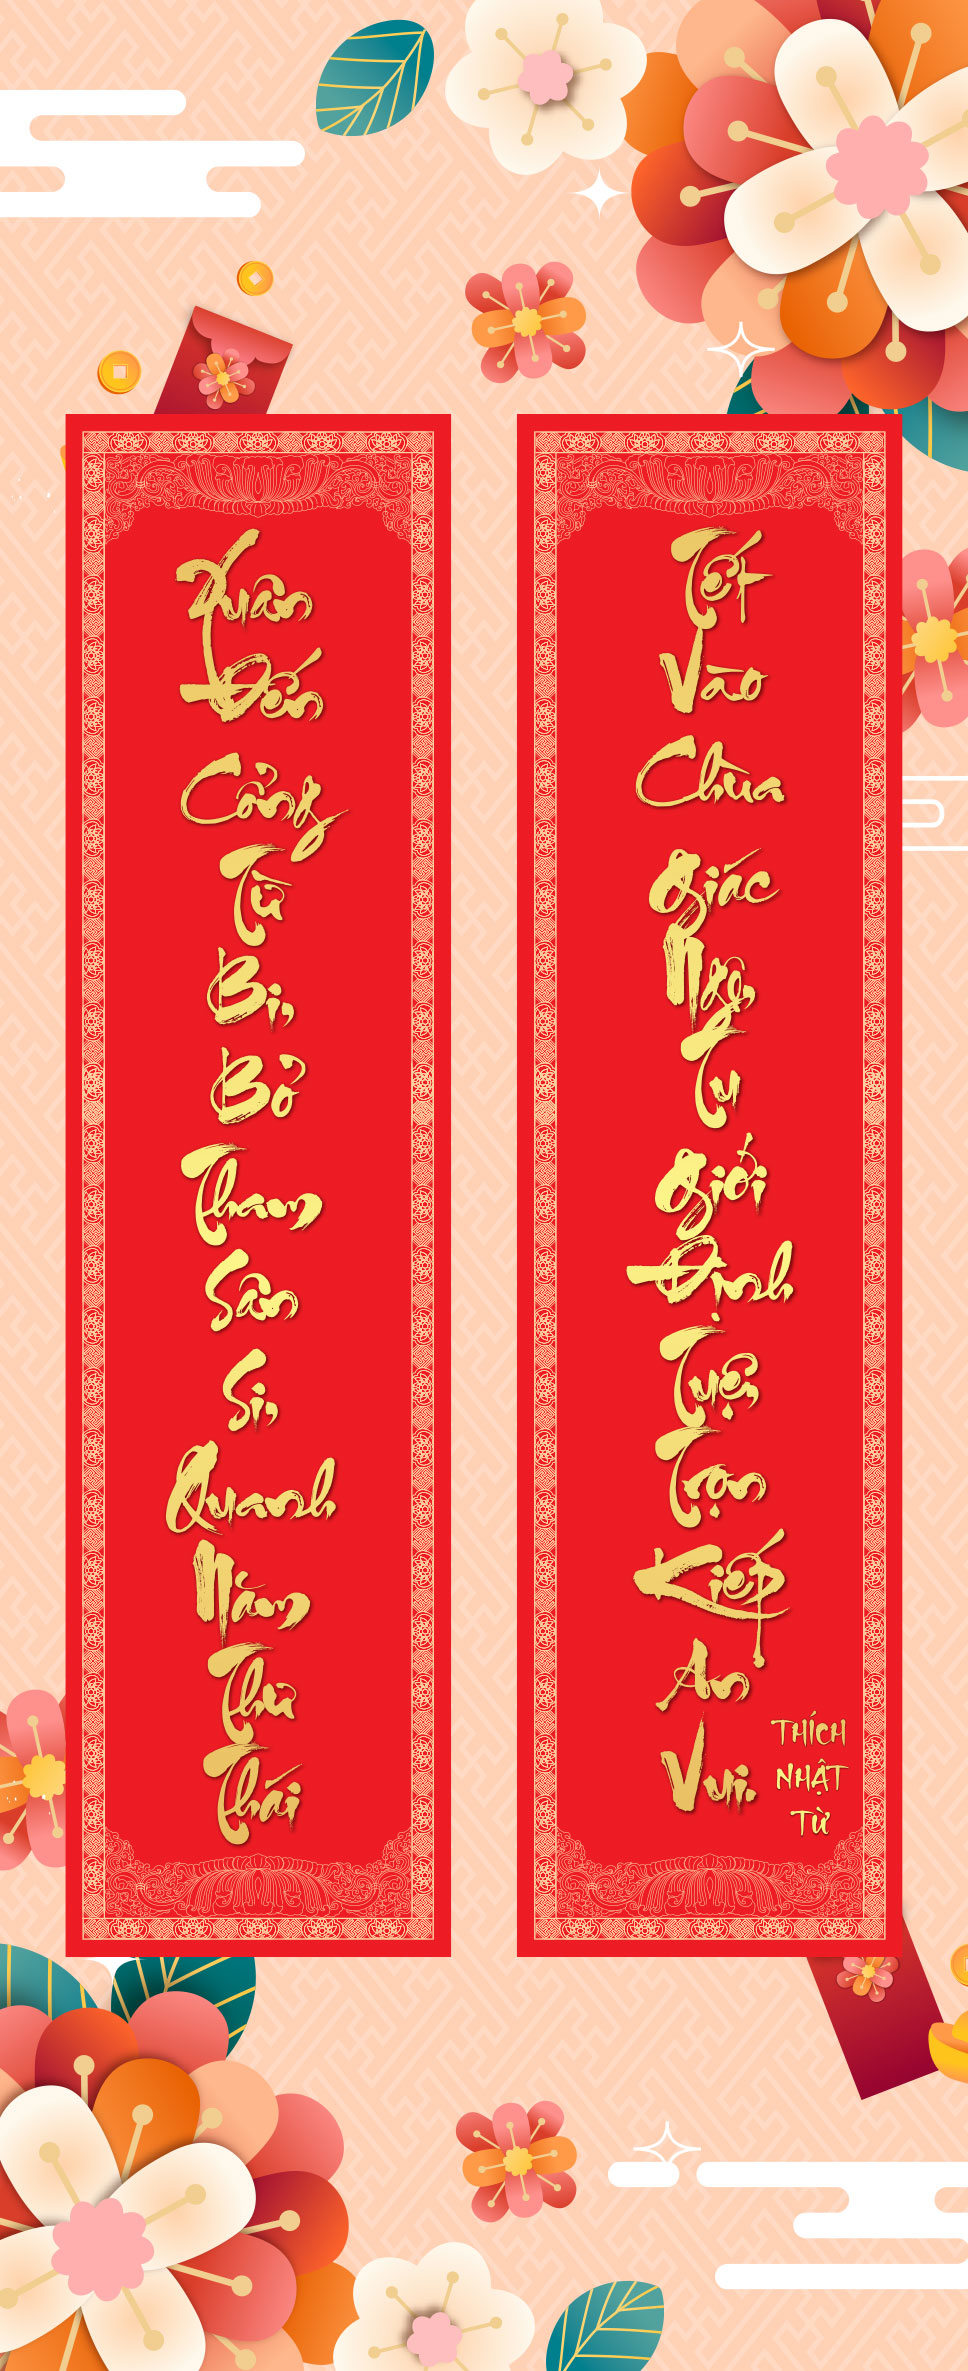 Xuân
Đến
Cổng
Từ
Bi,
Bỏ
Tham
Sân
Si,
Quanh
Năm
Thư
Thái
Tết
Vào
Chùa
Giác
Ngộ,
Tu
Giới
Định
Tuệ,
Trọn
Kiếp
An
Vui.
THÍCH
NHẬT
TỪ